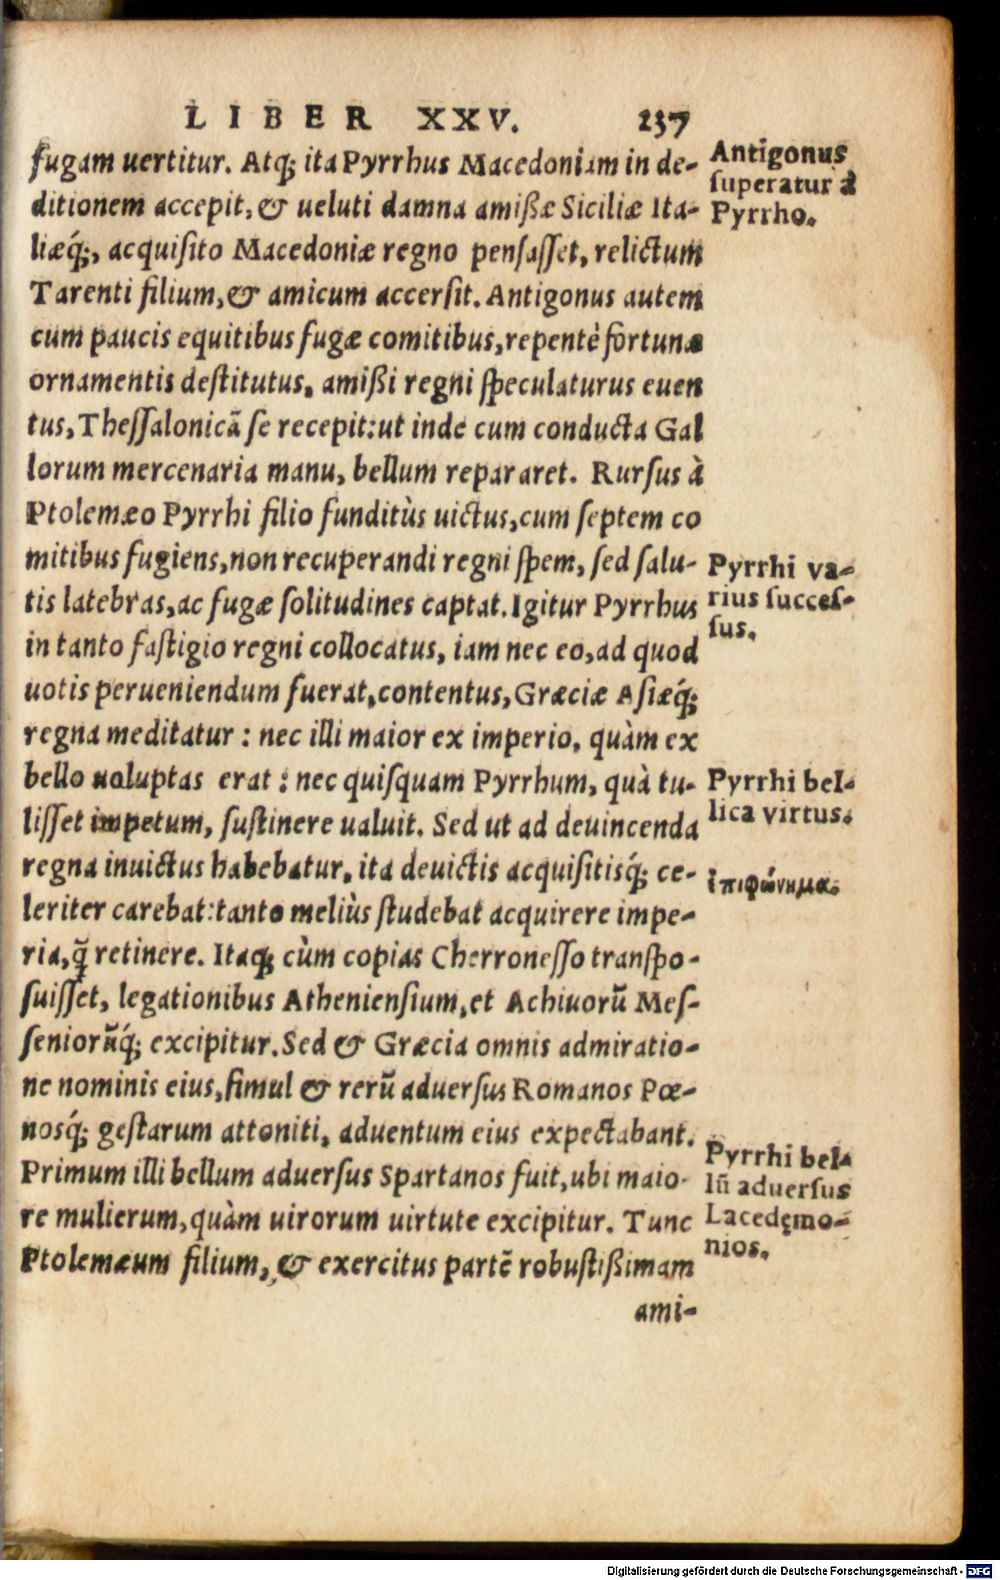 LIBER XXV. 237
fugam uertitur. Atq́; ita Pyrrhus Macedoniam in de-
ditionem accepit, & ueluti damna amißæ Siciliæ Ita-
liæq́;, acquiſito Macedoniæ regno penſaſſet, relictum
Tarenti filium, & amicum accerſit. Antigonus autem
cum paucis equitibus fugæ comitibus, repentè fortunæ
ornamentis deſtitutus, amißi regni ſpeculaturus euen
tus, Theſſalonicã ſe recepit: ut inde cum conducta Gal
lorum mercenaria manu, bellum repararet. Rurſus à
Ptolemæo Pyrrhi filio funditùs uictus, cum ſeptem co
mitibus fugiens, non recuperandi regni ſpem, ſed ſalu-
tis latebras, ac fugæ ſolitudines captat. Igitur Pyrrhus
in tanto faſtigio regni collocatus, iam nec eo, ad quod
uotis perueniendum fuerat, contentus, Græciæ Aſiæq́;
regna meditatur: nec illi maior ex imperio, quàm ex
bello uoluptas erat: nec quiſquam Pyrrhum, quà tu-
liſſet impetum, ſuſtinere ualuit. Sed ut ad deuincenda
regna inuictus habebatur, ita deuictis acquiſitisq́; ce-
leriter carebat: tanto meliùs ſtudebat acquirere impe-
ria, q̃ retinere. Itaq; cùm copias Cherroneſſo tranſpo-
ſuiſſet, legationibus Athenienſium, et Achiuorũ Meſ-
ſeniorũq́; excipitur. Sed & Græcia omnis admiratio-
ne nominis eius, ſimul & rerũ aduerſus Romanos Pœ-
nosq́; geſtarum attoniti, aduentum eius expectabant.
Primum illi bellum aduerſus Spartanos fuit, ubi maio-
re mulierum, quàm uirorum uirtute excipitur. Tunc
Ptolemæum filium, & exercitus partẽ robuſtißimam
ami-
Antigonus
ſuperatur à
Pyrrho.
Pyrrhi va-
rius ſucceſ-
ſus.
Pyrrhi bel-
lica virtus.
ἐπιφώνημα.
Pyrrhi bel-
lũ aduerſus
Lacedęmo-
nios.
Digitalisierung gefördert durch die Deutsche Forschungsgemeinschaft - DFG